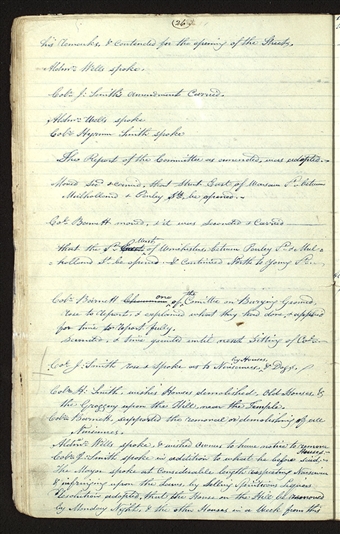 (26
his remarks, & contended for the opening of the Streets.
Aldn. Wells spoke.
Col. J. Smith's amendment Carried.
Aldn. Wells spoke
Col. Hyrum Smith spoke
This Report of the Committee as amended, was adopted.
Moved, Sec'd & carried, that Street East of Warsaw St. between
Mulholland & Parley Sts. be opened.
Col. Barnett moved, & it was seconded & carried
that the St. East of between Parley St. & Mul-
holland St. be opened & Continued North to Young St.
Col. Barnett one of the Comittee on Burying Ground,
rose to Report, & explained what they had done, & asked
for time to report fully.
Seconded, & time granted until next Sitting of
Col. J. Smith rose & spoke as to Nuisances, by Houses, & Dogs.
Col. H. Smith, wishes Houses demolished, Old Houses, &
the Groggery upon the Hill, near the Temple.
Col. Barnett, supported the removal or demolishing of all
Nuisances.
Aldn. Wells spoke, & wished owners to have notice to remove
Houses.
Col. J. Smith spoke in addition to what he before said,
The Mayor spoke at Considerable length respecting Nuisances
& infringing upon the Laws, by Selling Spirituous Liquors
Resolution adopted, that the House on the Hill be removed
by Monday Night, & the other Houses in a Week from this